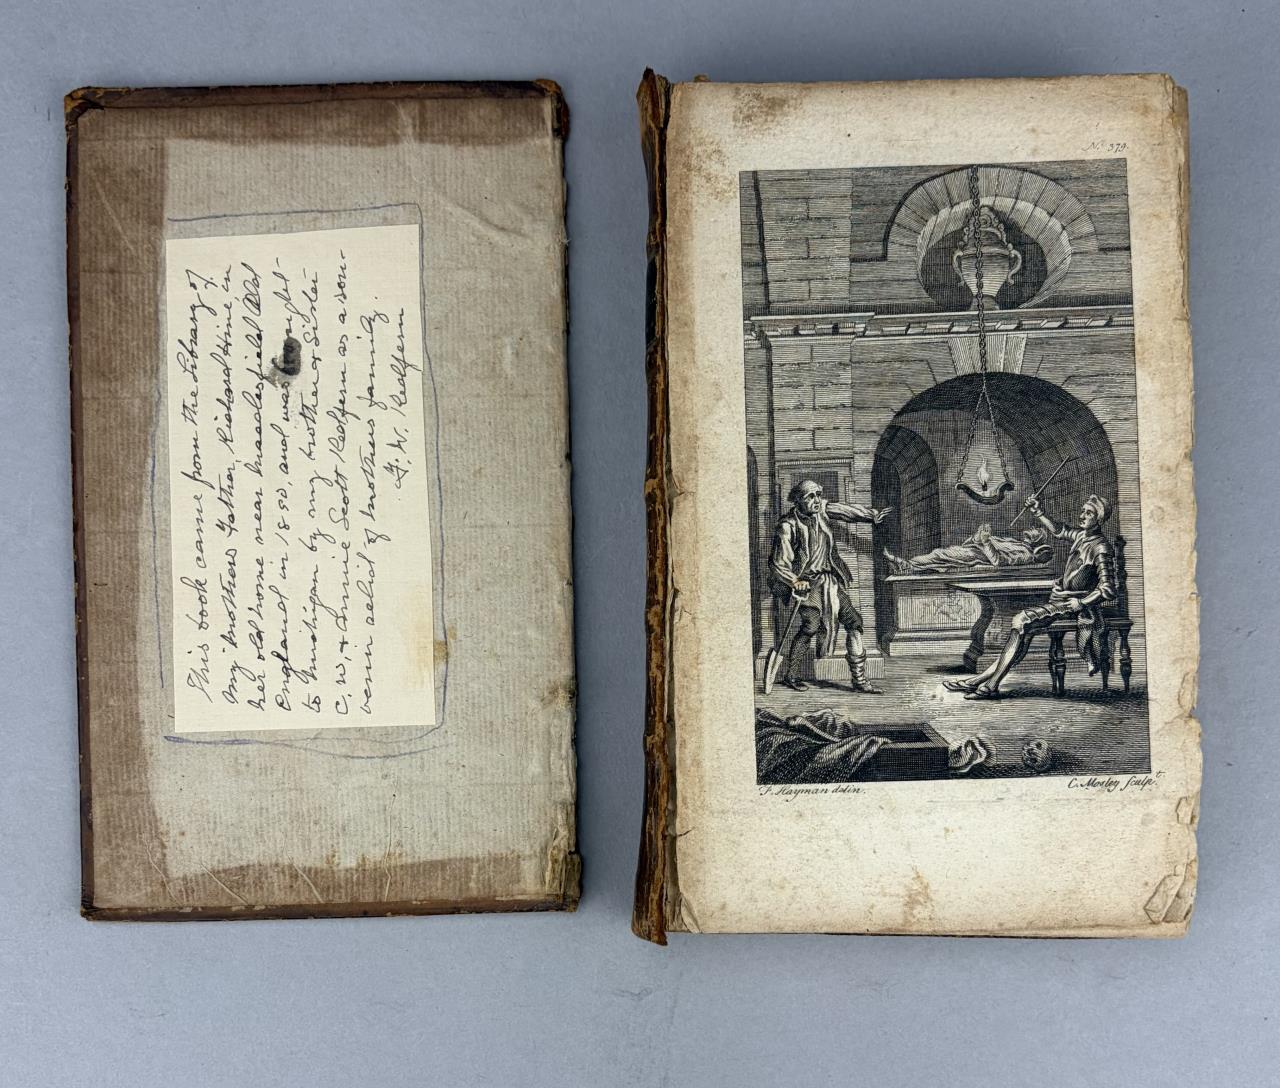 This book came from the Library of
my mothers Father, Richard Hine in
her old home near Macclesfield Old
England in 1880, and was brought
to Michigan by my brother & Sister
C. W. & Annie Scott Redfern as a sou-
venir relic of mothers family.
F. W. Redfern
No. 379.
F. Hayman delin.
C. Mosley sculpt.